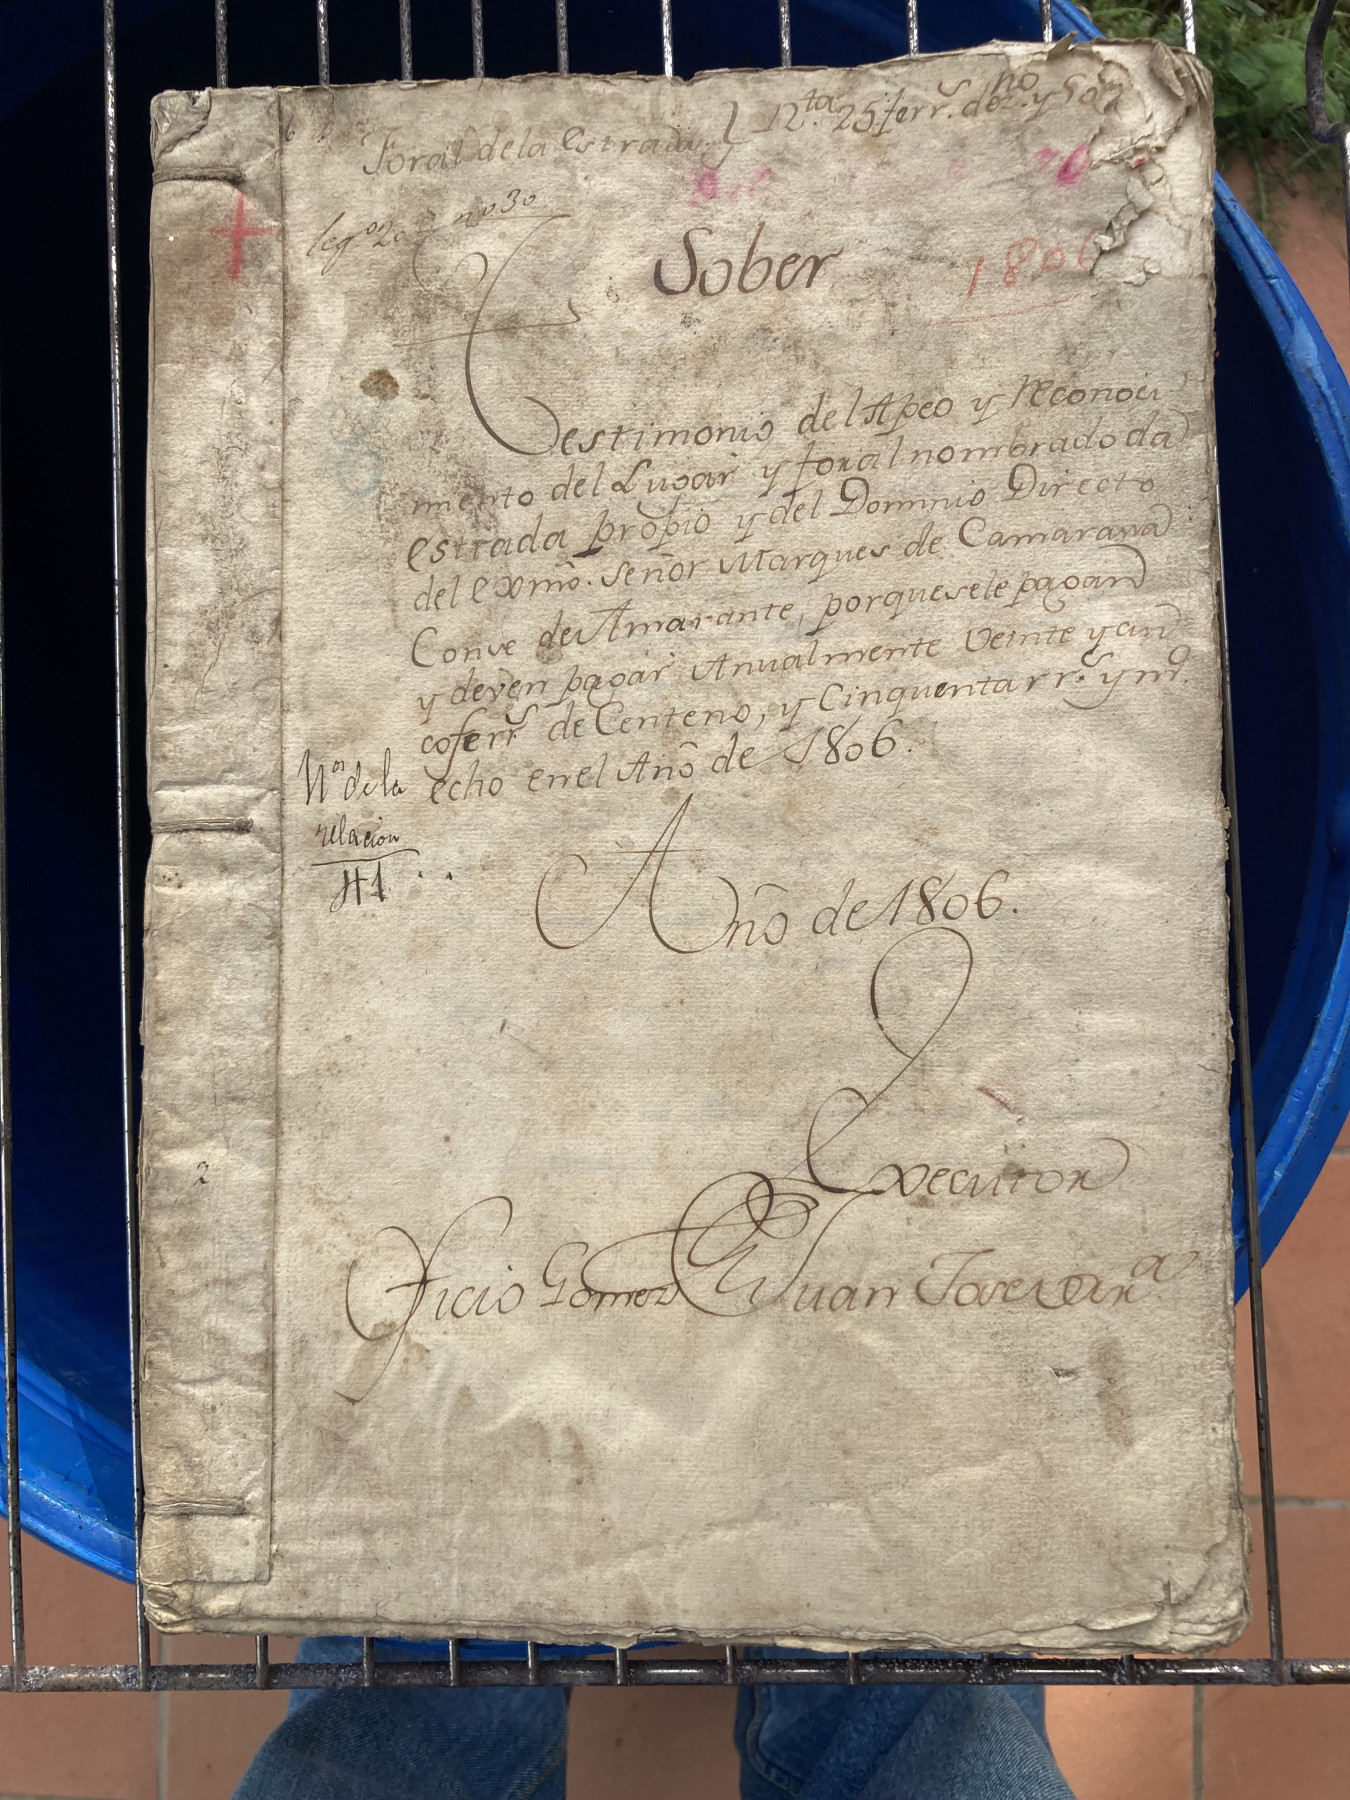 Foral de la Estrada } 12.ta 25 ferr.s de zno. y 50
leg.o 20 n.o 30
Sober
1806
Testimonio del Apeo y reconoci
miento del Lugar y foral nombrado da
estrada propio y del Dominio Directo
del Exmô. Señor Marques de Camarasa
Conde de Amarante, porque se le pagan
y deven pagar Anualmente Veinte y cin
co ferr.s de Centeno, y Cinquenta rr.s y m.o
echo en el Año de 1806.
N.on de la
relacion
41
Año de 1806.
2
Executor
Oficio Gomez
Juan Taveira